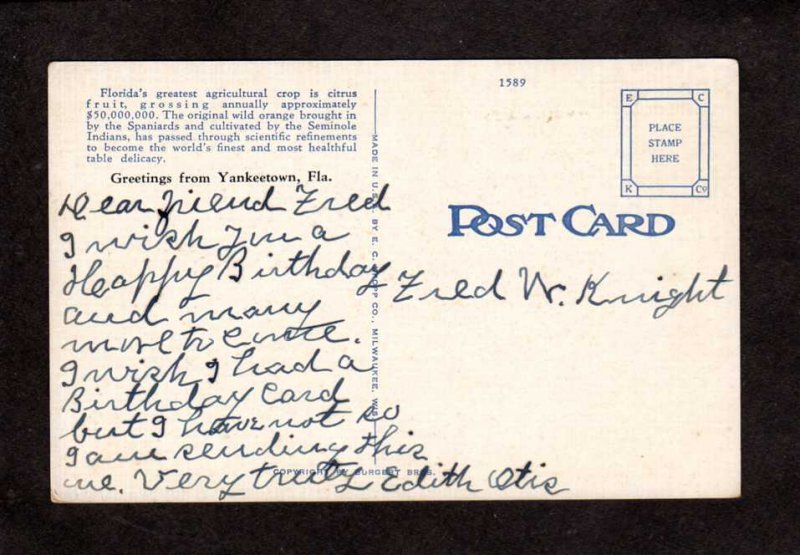 Florida's greatest agricultural crop is citrus
fruit, grossing annually approximately
$50,000,000. The original wild orange brought in
by the Spaniards and cultivated by the Seminole
Indians, has passed through scientific refinements
to become the world's finest and most healthful
table delicacy.
Greetings from Yankeetown, Fla.
Dear friend Fred
I wish you a
Happy Birthday
and many
more to come.
I wish I had a
Birthday card
but I have not so
I am sending this
one. Very truly Edith Otis
COPYRIGHT BY BURGERT BROS.
MADE IN U.S.A. BY E. C. KROPP CO., MILWAUKEE, WIS.
1589
E C
PLACE
STAMP
HERE
K Co
POST CARD
Fred W. Knight